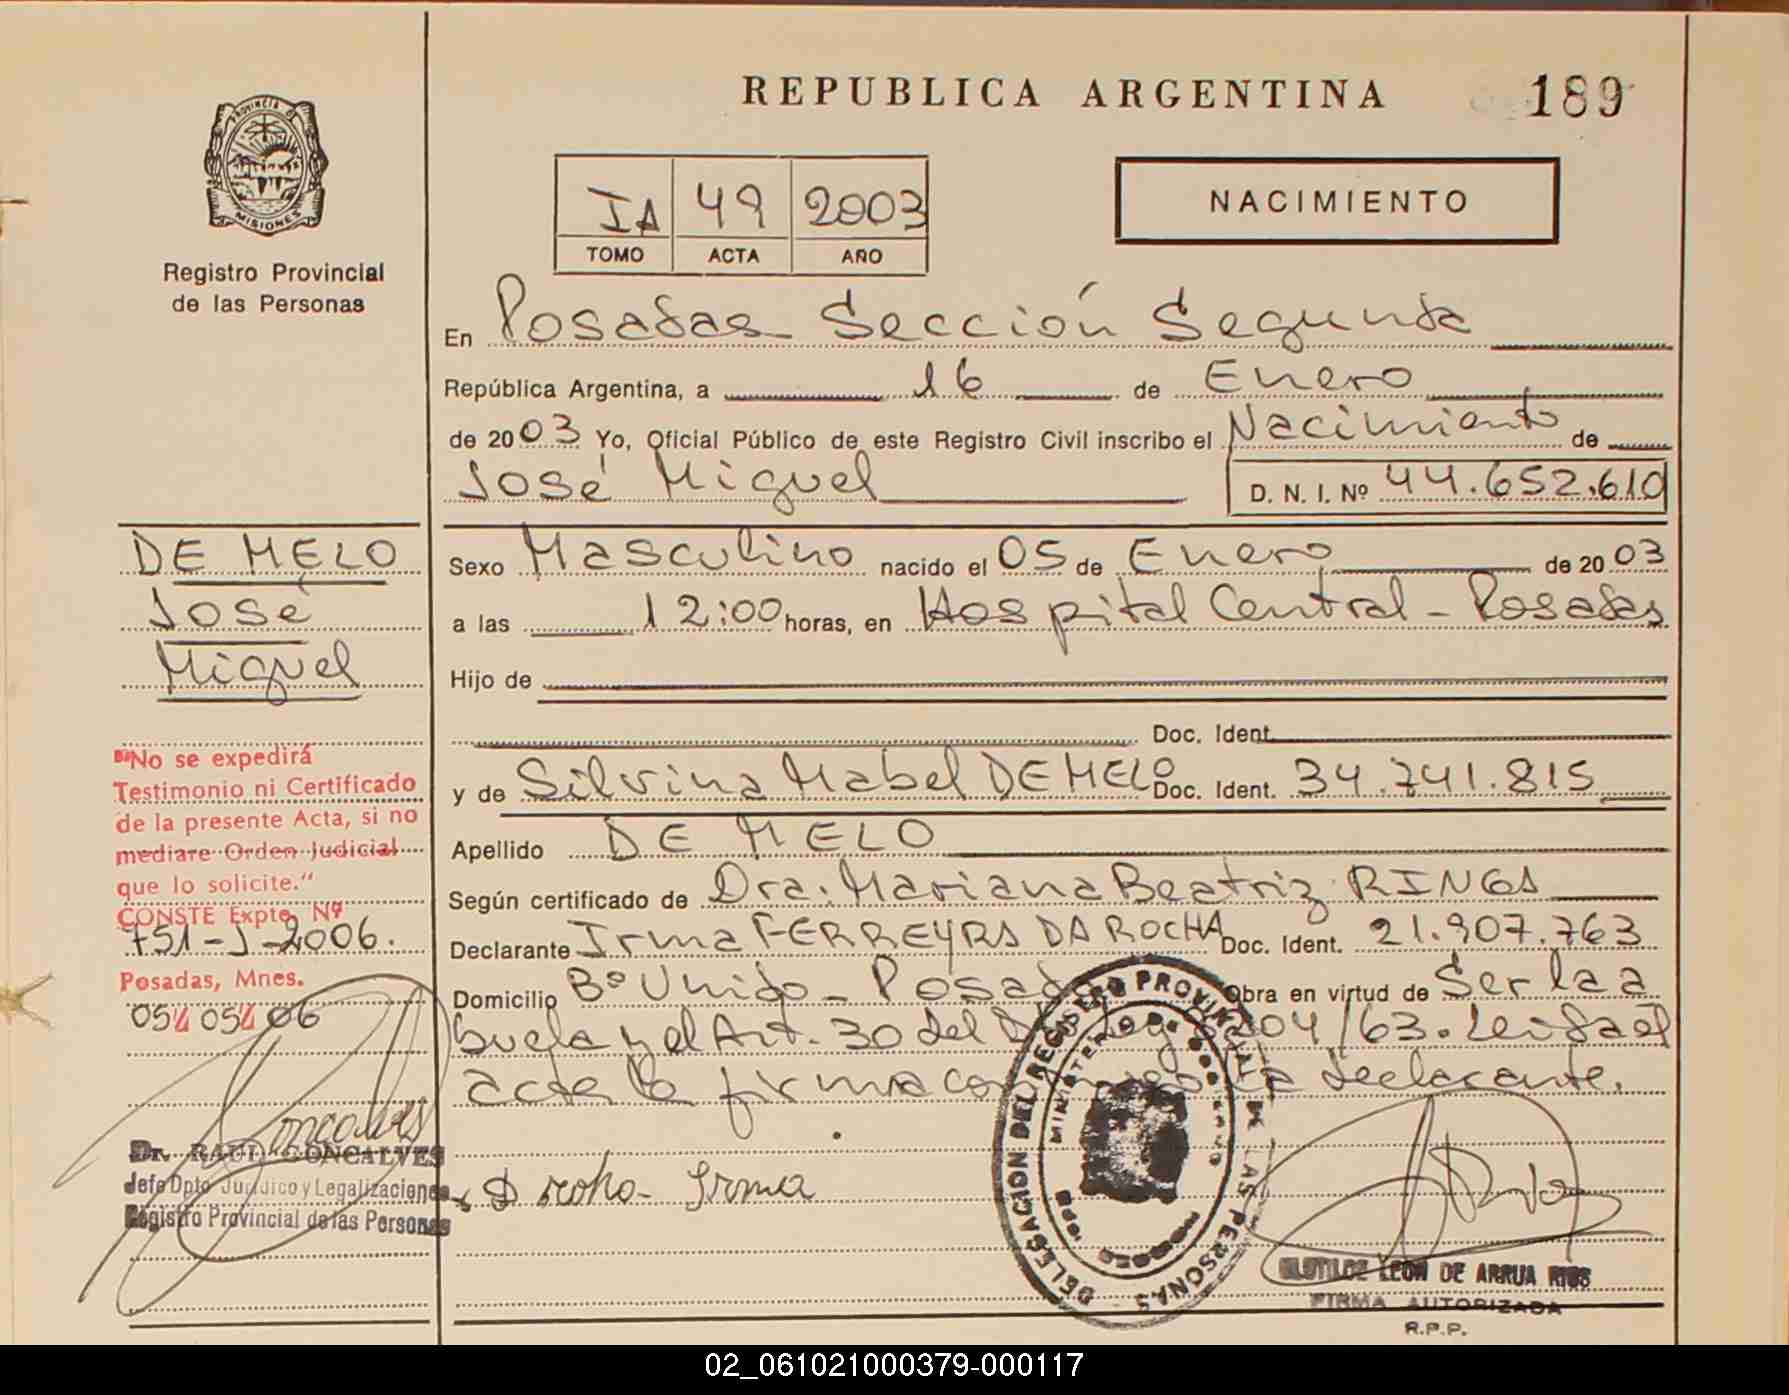 REPUBLICA ARGENTINA
189
PROVINCIA D
MISIONES
Registro Provincial
de las Personas
IA 49 2003
TOMO ACTA AÑO
NACIMIENTO
En Posadas Sección Segunda
República Argentina, a 16 de Enero
de 2003 Yo, Oficial Público de este Registro Civil inscribo el Nacimiento de
José Miguel D. N. I. Nº 44.652.610
DE MELO
José
Miguel
Sexo Masculino nacido el 05 de Enero de 2003
a las 12:00 horas, en Hospital Central - Posadas
Hijo de
Doc. Ident.
y de Silvina Mabel DE MELO Doc. Ident. 34.741.815
Apellido DE MELO
Según certificado de Dra. Mariana Beatriz RINGA
Declarante Irma FERREYRA DA ROCHA Doc. Ident. 21.907.763
Domicilio Bº Unido - Posadas Obra en virtud de Ser la a
buela y el Art. 30 del 204/63. Leída el
acta la firma la declarante.
"No se expedirá
Testimonio ni Certificado
de la presente Acta, si no
mediare Orden Judicial
que lo solicite."
CONSTE Expte. Nº
751-J-2006.
Posadas, Mnes.
05/05/06
Goncalves
Dr. RAUL GONCALVES
Jefe Dpto Jurídico y Legalizaciones
Registro Provincial de las Personas
D rocha Irma
DELEGACION DEL REGISTRO PROVINCIAL DE LAS PERSONAS
CLOTILDE LEON DE ARRUA RIOS
FIRMA AUTORIZADA
R.P.P.
02_061021000379-000117